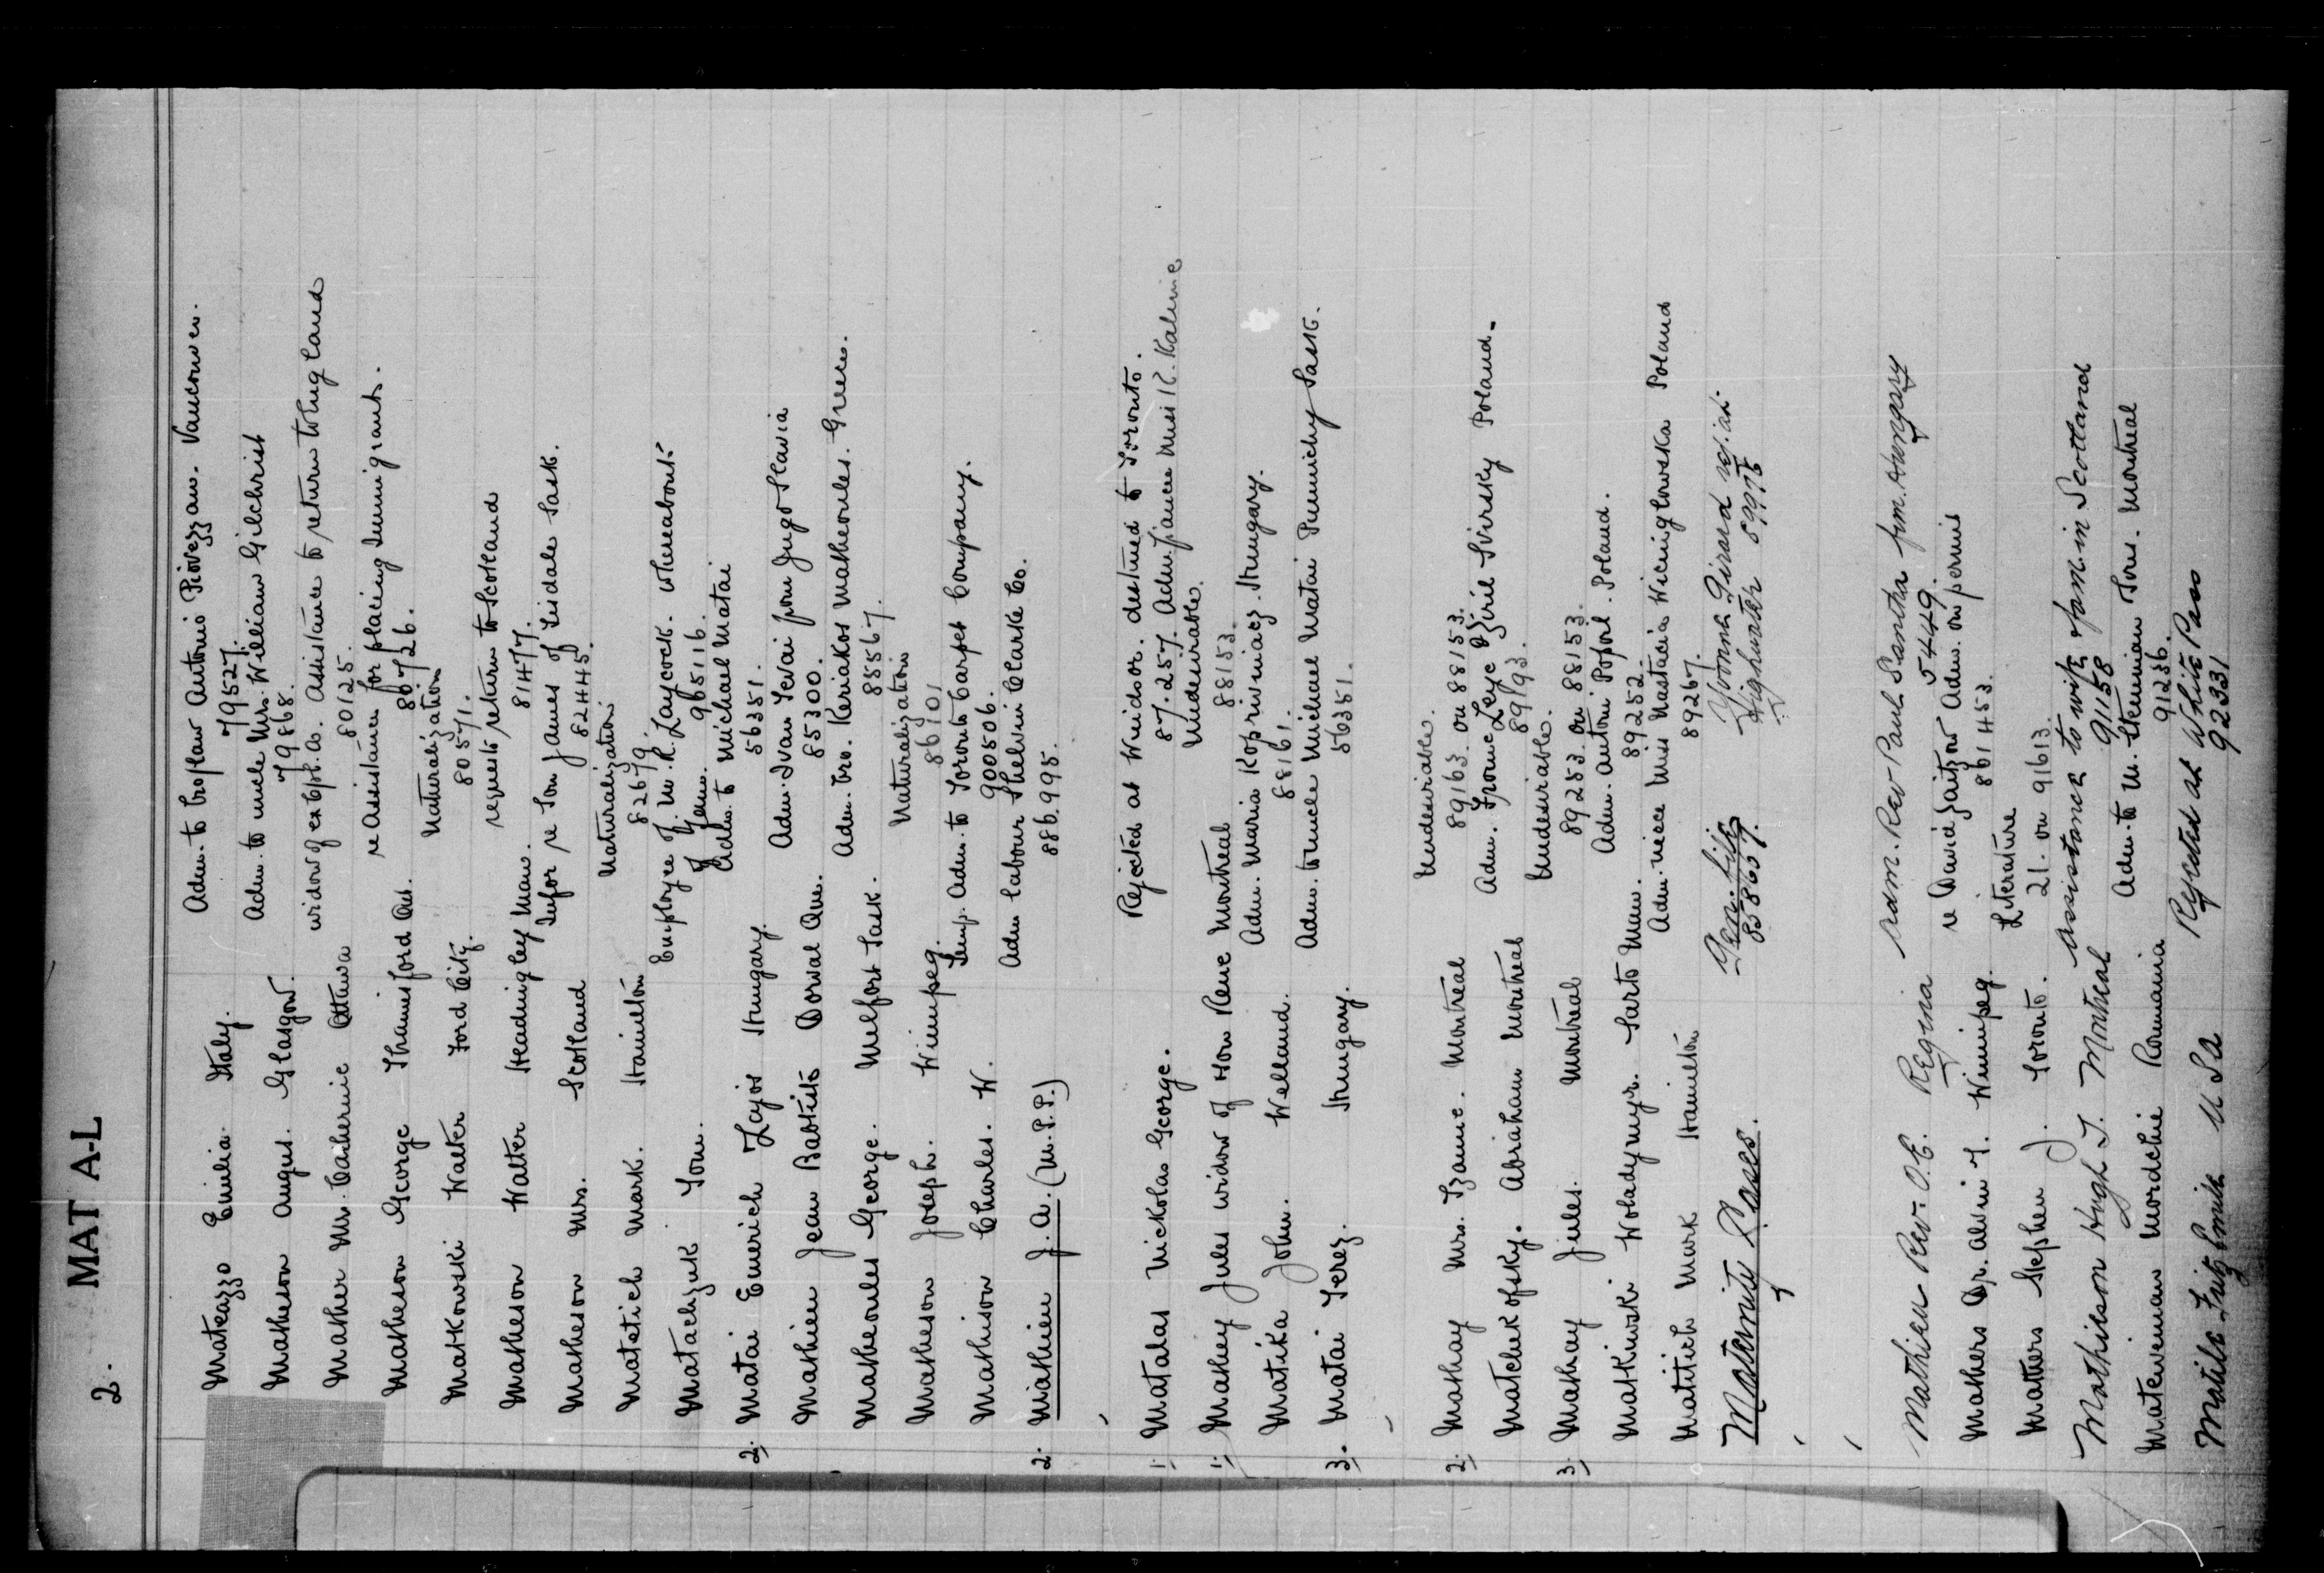 2. MAT A-L
Mateazzo Emilia Italy. Adm. to Antonio Piovezzan. Vancouver.
79527.
Matheson Angus. Glasgow. Adm. to uncle Mrs. William Gilchrist
79868.
Mather Mrs. Catherine Ottawa widow of ex Assistance to return to England
80125.
Matheson George Thamesford Ont. re Assistance for placing Immigrants.
80726.
Matkowski Walter Ford City. Naturalization
80571.
Matheson Walter Headingley Man. requests return to Scotland
81477.
Matheson Mrs. Scotland Infor re Son James of Tisdale Sask.
82445.
Matetich Mark. Hamilton Naturalization
82679.
Matachzuk Tom. Employee of M. R. Laycock. Whereabouts
of 965116.
2. Matai Emerich Lajos Hungary. Adm. to Michael Matai
56351.
Mathieu Jean Babtiste Dorval Que. Adm. Ivan from Jugoslavia
85300.
Matheoules George. Melfort Sask. Adm. Bro. Keriakos Matheoules. Greece.
88567.
Matheson Joseph. Winnipeg. Naturalization
86101
Mathison Charles. W. Temp. Adm. to Toronto Carpet Company.
900506.
2. Mathieu J. A. (M.P.P.) Adm labour Shelvin Clarke Co.
886.995.
1. Matalas Nickolas George. Rejected at Windsor. destined to Toronto.
87.257. Adm. Frances Miss K. Kalinic
1. Mathey Jules widow of Hon Rene Montreal Undesirable.
88153.
Matika John. Welland. Adm. Maria Kopriviniacz. Hungary.
88161.
3. Matai Terez. Hungary. Adm. to uncle Michael Matai Punnichy Sask.
56351.
2. Mathay Mrs. Izanne. Montreal Undesirable.
89163 on 88153.
Matchekofsky. Abraham Montreal Adm. Leye & Ziril Svirsky Poland.
89193.
3. Mathay Jules. Montreal Undesirable.
89253 on 88153.
Matkiwski Woladymyr. Sarto Man. Adm. Antoni Poland.
89252.
Matitich Mark Hamilton Adm. niece Miss Nastacia Wicinglowska Poland
89267.
Maternity Cases. Gen. file Yvonne Girard
858639. Highwater 89975
Mathieu Rev. O.E. Regina Adm. Rev Paul Santha from Hungary
55449.
Mathers Dr. Alvin T. Winnipeg. re David Adm. on permit
861453.
Mathers Stephen J. Toronto. Literature
21. on 91613.
Mathieson Hugh T. Montreal Assistance to wife & fam. in Scotland
91158
Mateveinan Mordchie Roumania Adm. to M. Steminian Tours. Montreal
91236.
Matile Fritz Emile USA Rejected at White Pass
92331